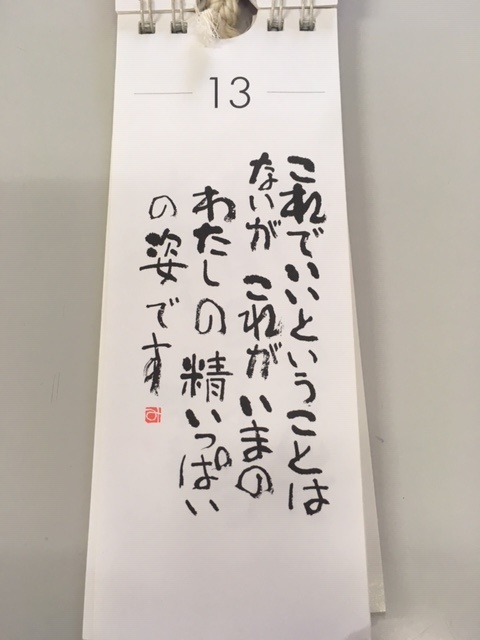 13
これでいいということは
ないが これがいまの
わたしの 精いっぱい
の 姿です